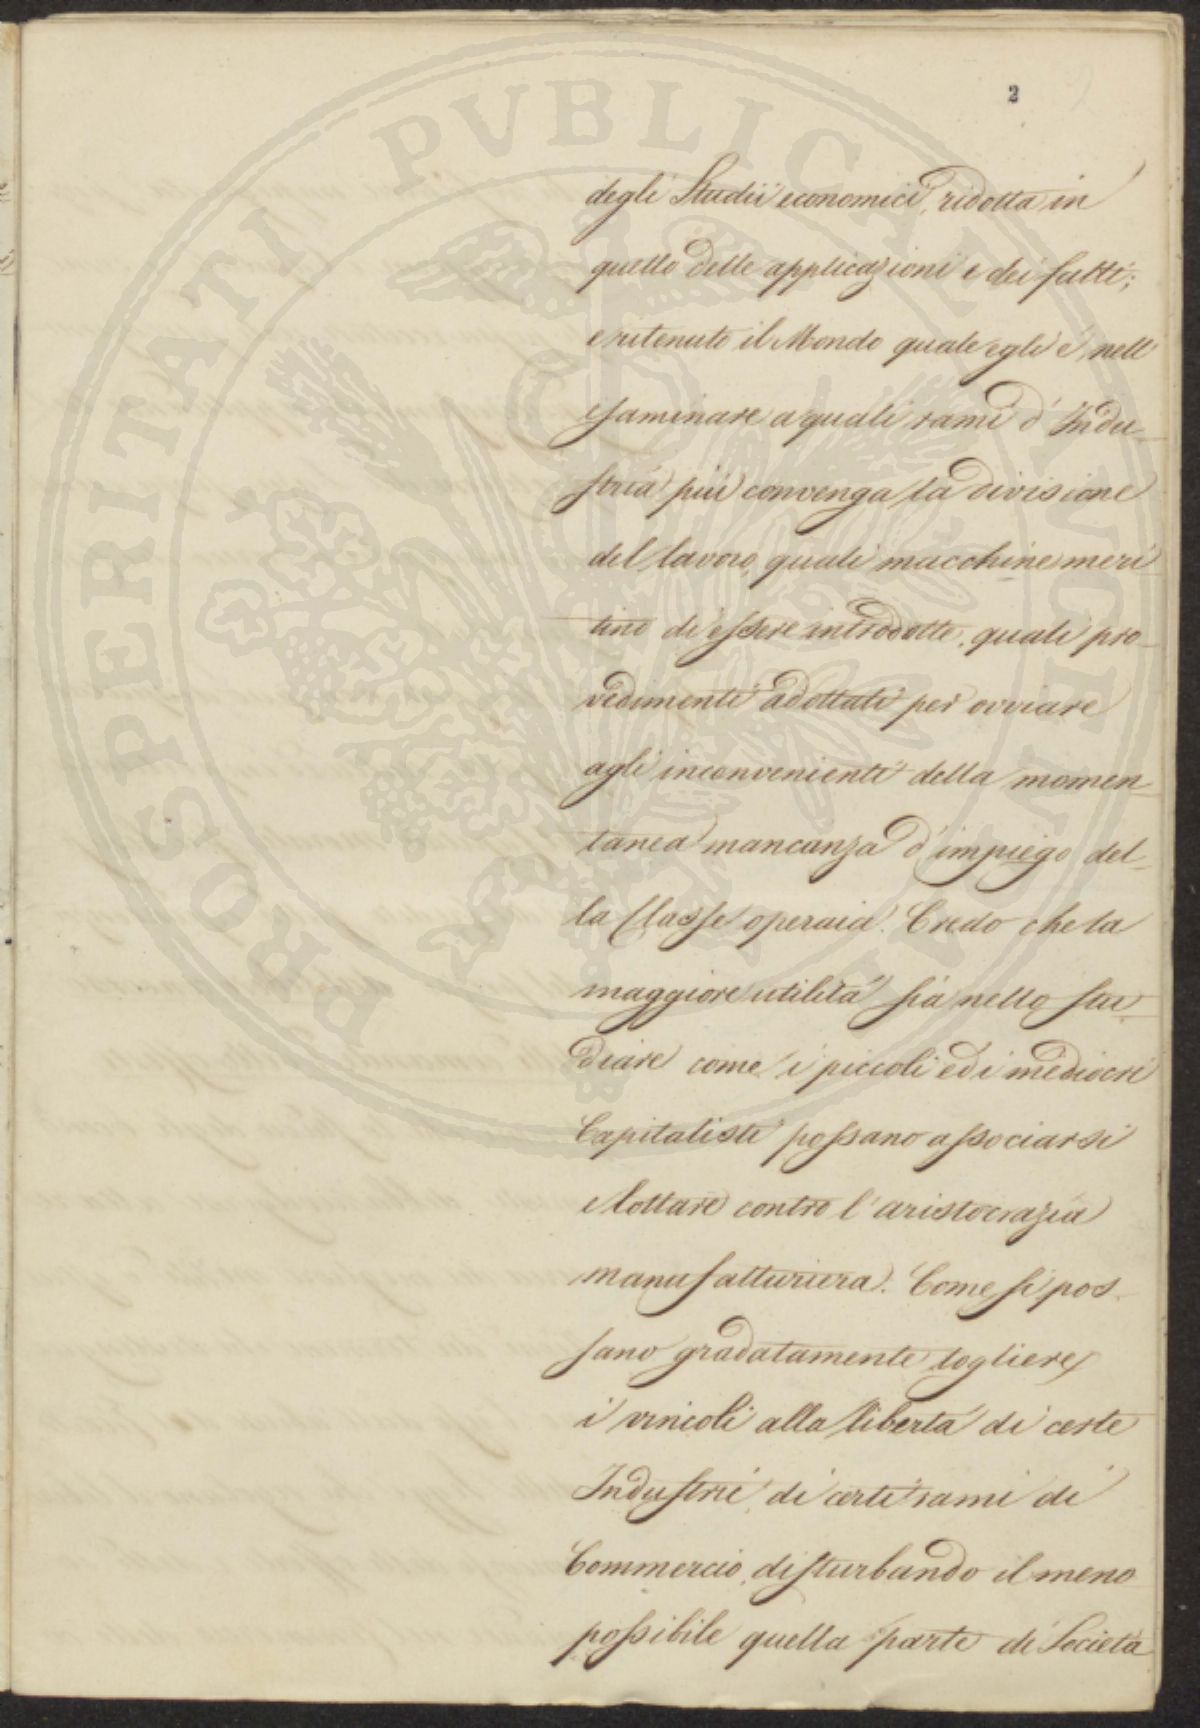 2
degli Studii economici, ridotta in
quello delle applicazioni e dei fatti;
e ritenuto il Mondo quale egli è, nell'
esaminare a quali rami d'Indu-
stria più convenga la divisione
del lavoro, quali macchine meri-
tino di essere introdotte, quali pro-
vedimenti adottati per ovviare
agli inconvenienti della momen-
tanea mancanza d'impiego del-
la Classe operaia. Credo che la
maggiore utilità sia nello stu-
diare come i piccoli ed i mediocri
Capitalisti possano associarsi
e lottare contro l'aristocrazia
manufatturiera. Come si pos-
sano gradatamente togliere
i vincoli alla libertà di certe
Industrie, di certi rami di
Commercio, disturbando il meno
possibile quella parte di Società
PROSPERITATI PUBLICAE